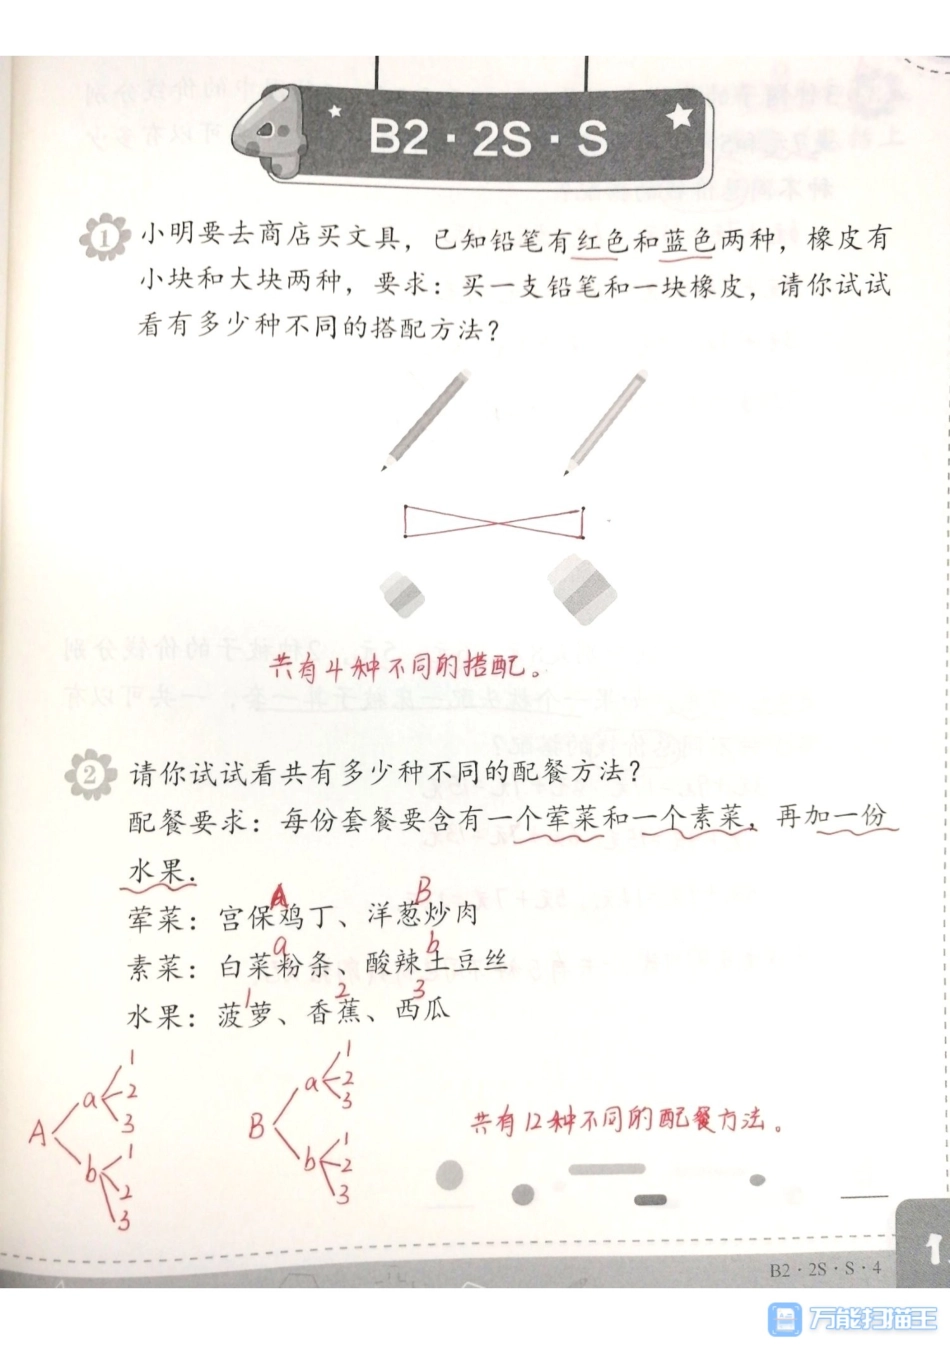 B2·2S·S
1 小明要去商店买文具，已知铅笔有红色和蓝色两种，橡皮有
小块和大块两种，要求：买一支铅笔和一块橡皮，请你试试
看有多少种不同的搭配方法？
共有4种不同的搭配。
2 请你试试看共有多少种不同的配餐方法？
配餐要求：每份套餐要含有一个荤菜和一个素菜，再加一份
水果.
A B
荤菜：宫保鸡丁、洋葱炒肉
a b
素菜：白菜粉条、酸辣土豆丝
1 2 3
水果：菠萝、香蕉、西瓜
A
a
1
2
3
b
1
2
3
B
a
1
2
3
b
1
2
3
共有12种不同的配餐方法。
1
B2·2S·S·4
万能扫描王